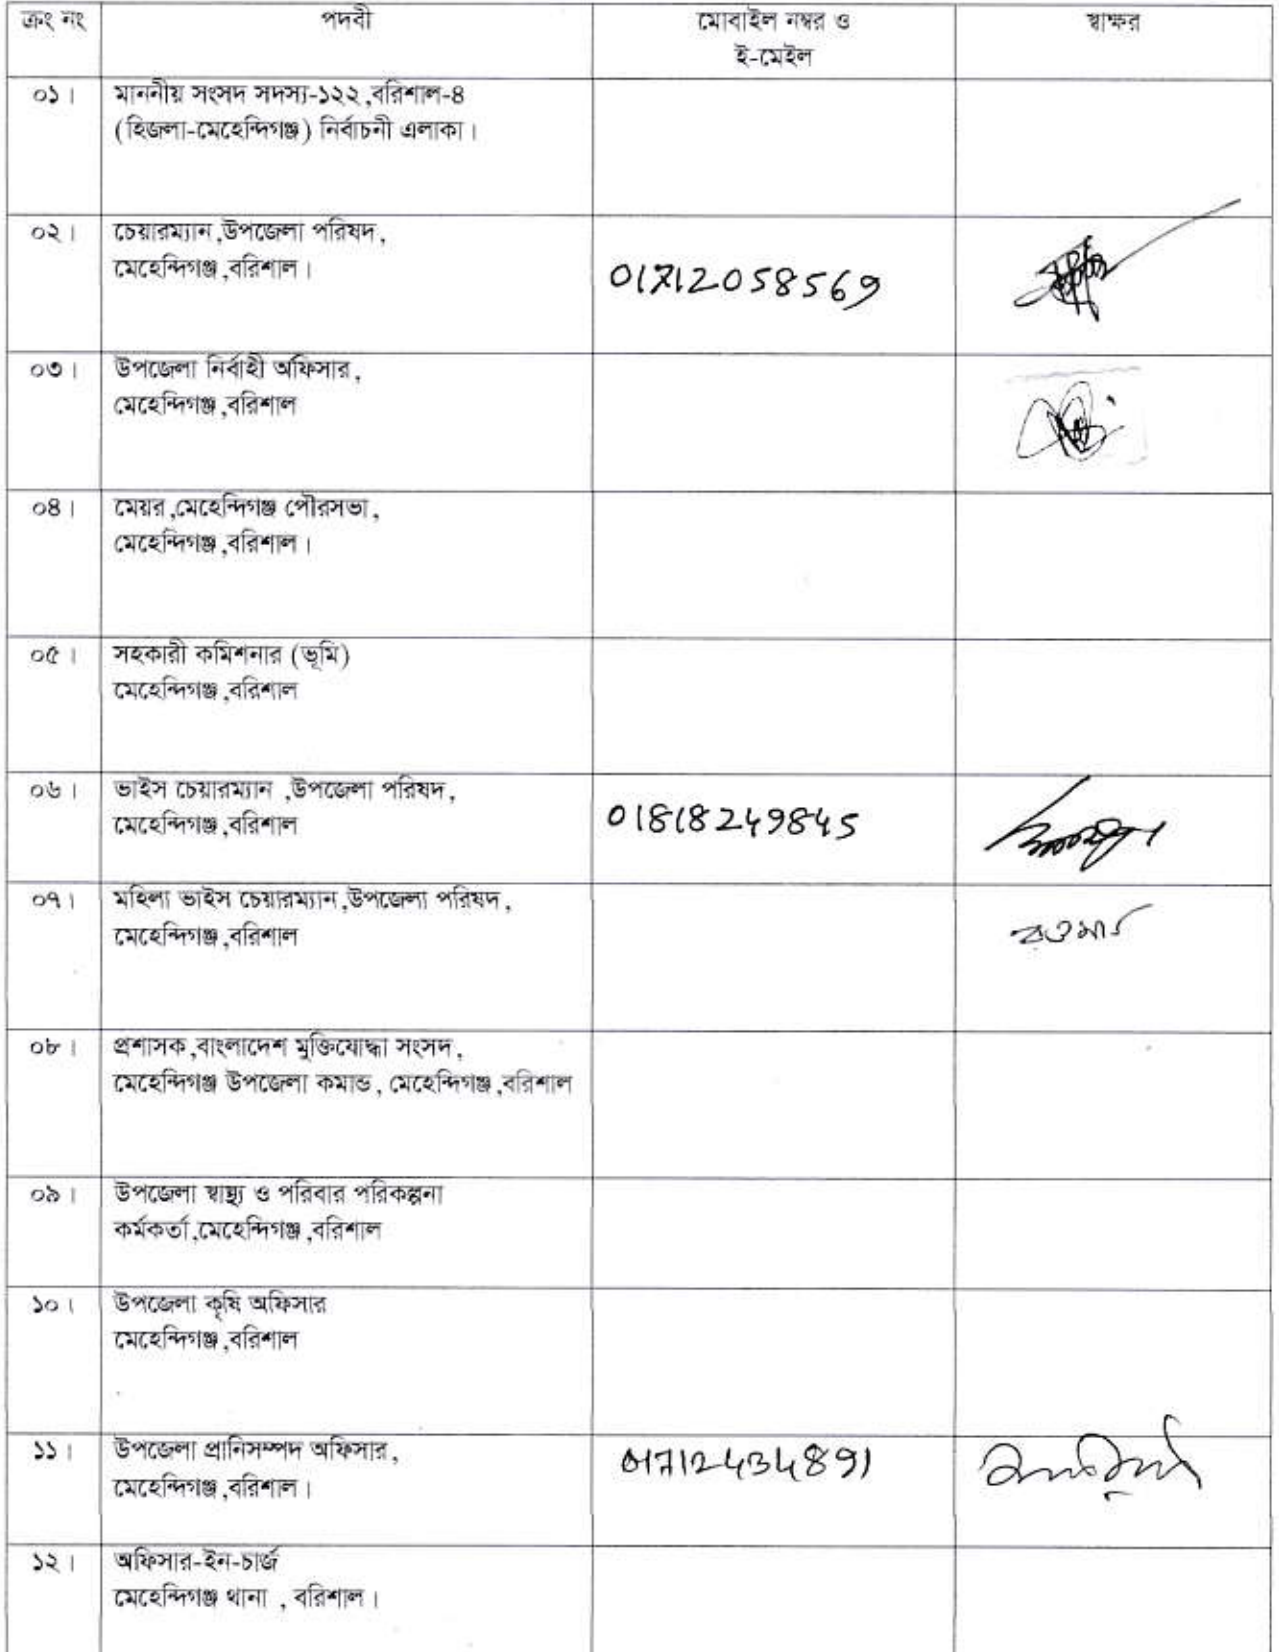 ক্রং নং পদবী মোবাইল নম্বর ও স্বাক্ষর
ই-মেইল
০১। মাননীয় সংসদ সদস্য-১২২,বরিশাল-৪
(হিজলা-মেহেন্দিগঞ্জ) নির্বাচনী এলাকা।
০২। চেয়ারম্যান,উপজেলা পরিষদ,
মেহেন্দিগঞ্জ,বরিশাল। 01712058569
০৩। উপজেলা নির্বাহী অফিসার,
মেহেন্দিগঞ্জ,বরিশাল
০৪। মেয়র,মেহেন্দিগঞ্জ পৌরসভা,
মেহেন্দিগঞ্জ,বরিশাল।
০৫। সহকারী কমিশনার (ভূমি)
মেহেন্দিগঞ্জ,বরিশাল
০৬। ভাইস চেয়ারম্যান ,উপজেলা পরিষদ,
মেহেন্দিগঞ্জ,বরিশাল 01818249845
০৭। মহিলা ভাইস চেয়ারম্যান,উপজেলা পরিষদ,
মেহেন্দিগঞ্জ,বরিশাল
০৮। প্রশাসক,বাংলাদেশ মুক্তিযোদ্ধা সংসদ,
মেহেন্দিগঞ্জ উপজেলা কমান্ড, মেহেন্দিগঞ্জ,বরিশাল
০৯। উপজেলা স্বাস্থ্য ও পরিবার পরিকল্পনা
কর্মকর্তা,মেহেন্দিগঞ্জ,বরিশাল
১০। উপজেলা কৃষি অফিসার
মেহেন্দিগঞ্জ,বরিশাল
১১। উপজেলা প্রানিসম্পদ অফিসার, 01712434891
মেহেন্দিগঞ্জ,বরিশাল।
১২। অফিসার-ইন-চার্জ
মেহেন্দিগঞ্জ থানা , বরিশাল।